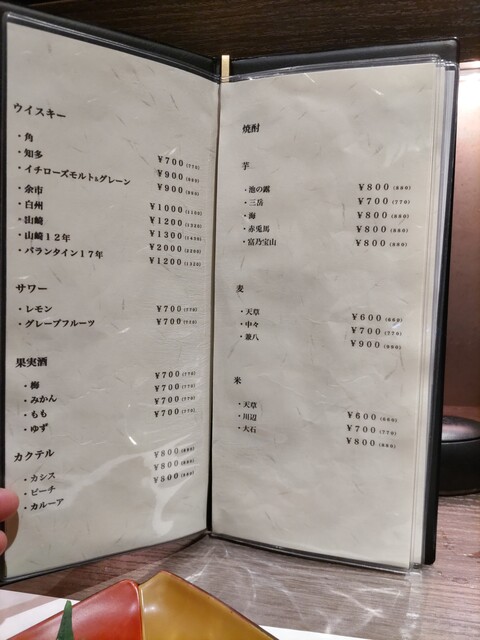 ウイスキー
・角 ¥700(770)
・知多 ¥900(990)
・イチローズモルト&グレーン ¥900(990)
・余市 ¥1000(1100)
・白州 ¥1200(1320)
・山崎 ¥1300(1430)
・山崎12年 ¥2000(2200)
・バランタイン17年 ¥1200(1320)
サワー
・レモン ¥700(770)
・グレープフルーツ ¥700(770)
果実酒
・梅 ¥700(770)
・みかん ¥700(770)
・もも ¥700(770)
・ゆず ¥700(770)
カクテル
・カシス ¥800(880)
・ピーチ ¥800(880)
・カルーア ¥800(880)
焼酎
芋
・池の露 ¥800(880)
・三岳 ¥700(770)
・海 ¥800(880)
・赤兎馬 ¥800(880)
・富乃宝山 ¥800(880)
麦
・天草 ¥600(660)
・中々 ¥700(770)
・兼八 ¥900(990)
米
・天草 ¥600(660)
・川辺 ¥700(770)
・大石 ¥800(880)